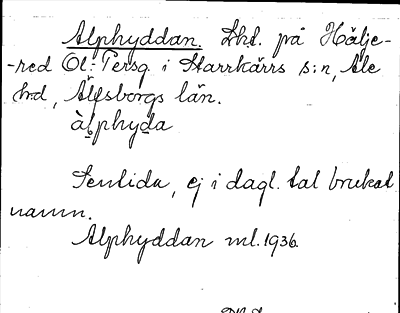 Alphyddan. Lht. på Hälje-
-red Ol-Persg. i Starrkärrs s:n, Ale
hd, Älfsborgs län.
àlphyda
Sentida, ej i dagl. tal brukat
namn.
Alphyddan ml. 1936.